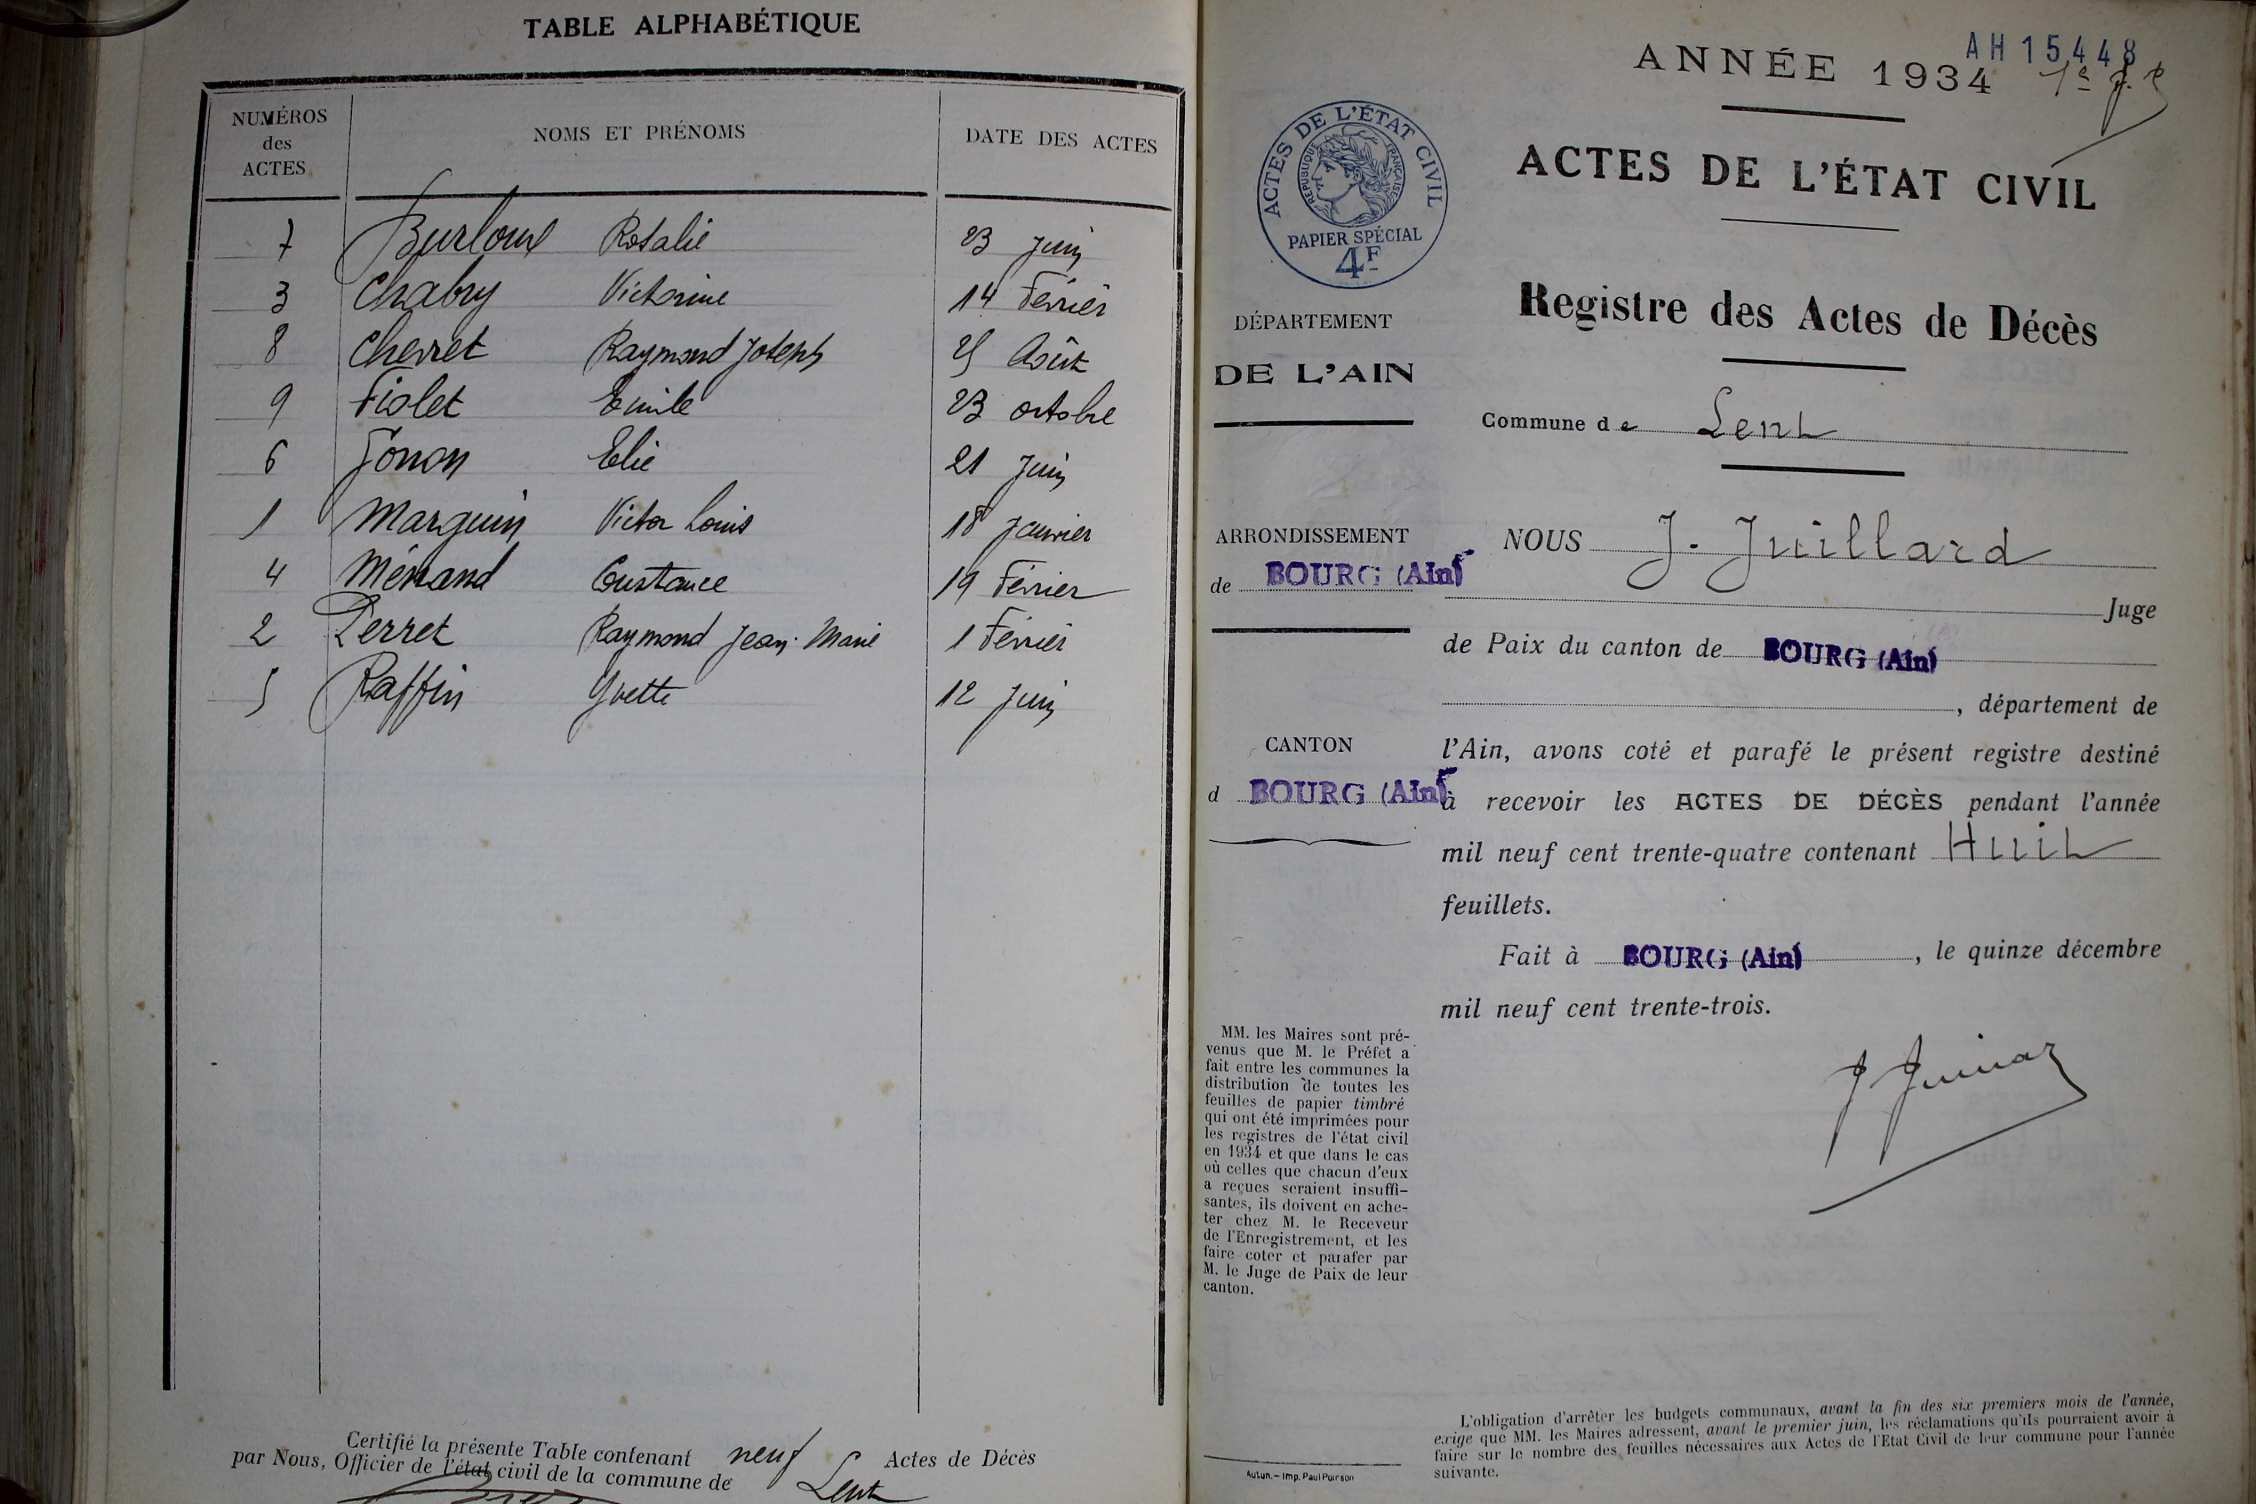 TABLE ALPHABÉTIQUE
NUMÉROS des ACTES
NOMS ET PRÉNOMS
DATE DES ACTES
7 Burloux Rosalie 23 Juin
3 Chabry Victorine 14 Février
8 Cherret Raymond Joseph 25 Août
9 Fiolet Emile 23 octobre
6 Gonon Elie 21 Juin
1 Marguin Victor Louis 18 Janvier
4 Ménand Constance 19 Février
2 Perret Raymond Jean-Marie 1 Février
5 Raffin Yvette 12 Juin
Certifié la présente Table contenant neuf Actes de Décès
par Nous, Officier de l'état civil de la commune de Lent
AH 15448
ANNÉE 1934 1e
ACTES DE L'ÉTAT CIVIL
RÉPUBLIQUE FRANÇAISE
PAPIER SPÉCIAL
4F
ACTES DE L'ÉTAT CIVIL
Registre des Actes de Décès
DÉPARTEMENT
DE L'AIN
Commune de Lent
ARRONDISSEMENT
de BOURG (Ain)
CANTON
d BOURG (Ain)
NOUS J. Juillard
Juge
de Paix du canton de BOURG (Ain)
, département de
l'Ain, avons coté et parafé le présent registre destiné
à recevoir les ACTES DE DÉCÈS pendant l'année
mil neuf cent trente-quatre contenant Huit
feuillets.
Fait à BOURG (Ain), le quinze décembre
mil neuf cent trente-trois.
MM. les Maires sont pré-
venus que M. le Préfet a
fait entre les communes la
distribution de toutes les
feuilles de papier timbré
qui ont été imprimées pour
les registres de l'état civil
en 1934 et que dans le cas
où celles que chacun d'eux
a reçues seraient insuffi-
santes, ils doivent en ache-
ter chez M. le Receveur
de l'Enregistrement, et les
faire coter et parafer par
M. le Juge de Paix de leur
canton.
Autun. – Imp. Paul Poirson
L'obligation d'arrêter les budgets communaux, avant la fin des six premiers mois de l'année,
exige que MM. les Maires adressent, avant le premier juin, les réclamations qu'ils pourraient avoir à
faire sur le nombre des feuilles nécessaires aux Actes de l'Etat Civil de leur commune pour l'année
suivante.